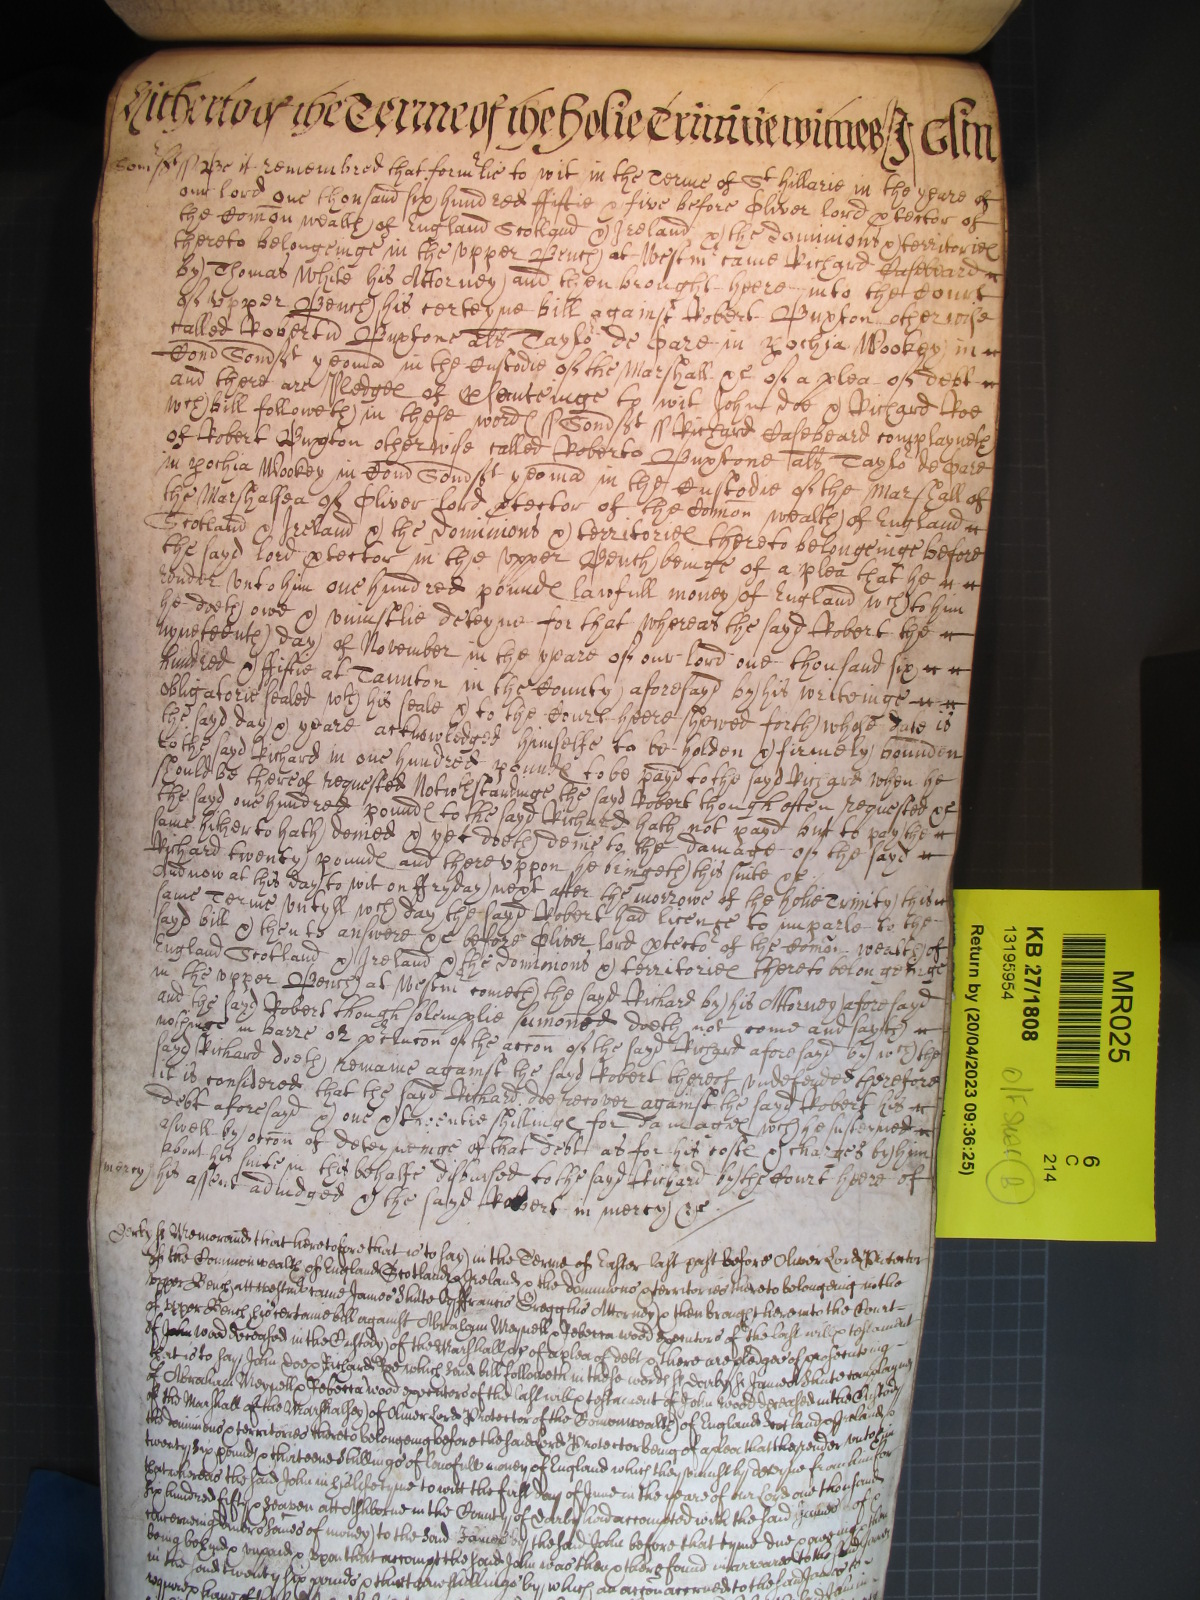 Hitherto of the Terme of the Holie Trinitie witnes J Glin
Som'sst ss Be it remembred that form'lie to wit in the Terme of St Hillarie in the yeare of
our lord one thousand six hundred fiftie & five before Oliver lord ptector of
the Comon wealth of England Scotland & Ireland & the dominions & territories
thereto belongeinge in the upper Bench at Westm' came Richard Casebeard
by Thomas White his Attorney and then brought heere into the Court
of upper Bench his certeyne bill against Robert Buxton otherwise
called Robertu Buxtone als Taylo' de Pare in pochia Wookey in
Com Somsst yeoma in the Custodie of the Marshall &c of a plea of debt
and there are Pledges of pseauteinge to wit John Doe & Richard Roe
wch bill followeth in these words ss Somsst ss Richard Casebeard complayneth
of Robert Buxton otherwise called Roberto Buxtone als Taylo' de Pare
in pochia Wookey in Com Somsst yeoma in the Custodie of the Marshall of
the Marshalsea of Oliver lord ptector of the Comon wealth of England
Scotland & Ireland & the dominions & territories thereto belongeinge before
the sayd lord ptector in the upper Bench beinge of a plea that he
render unto him one hundred pounds lawfull money of England wch to him
he doeth owe & uniustlie deteyne for that whereas the sayd Robert the
nyneteenth day of November in the yeare of our lord one thousand six
hundred & fiftie at Taunton in the County aforesayd by his writeinge
obligatorie sealed wth his seale & to the Court heere shewed forth whose date is
the sayd day & yeare acknowledged himselfe to be holden & firmely bounden
to the sayd Richard in one hundred pounds to be payd to the sayd Richard when he
should be thereof requested Notwthstandinge the sayd Robert though often requested &c
the sayd one hundred pounds to the sayd Richard hath not payd but to pay the
same hitherto hath denied & yet doeth denie to the damage of the sayd
Richard twenty pounds and thereuppon he bringeth this suite &c
And now at this day to wit on ffryday next after the morrowe of the holie Trinity this
same Terme untill wch day the sayd Robert had licence to imparle to the
sayd bill & then to answere &c before Oliver lord ptecto' of the Comon wealth of
England Scotland & Ireland & the dominions & territories thereto belongeinge
in the upper Bench at Westm' cometh the sayd Richard by his Attorney aforesayd
and the sayd Robert though solemplie sumoned doeth not come and sayeth
nothinge in barre or pclucon of the accon of the sayd Richard aforesayd by wch the
sayd Richard doeth remaine against the sayd Robert thereof undefended Therefore
it is considered that the sayd Richard doe recover against the sayd Robert his
debt aforesayd & one & twentie shillings for damages wch he susteyned
aswell by occon of deteyneinge of that debt as for his costs & charges by him
about his suite in this behalfe disbursed to the sayd Richard by the Court heere of
mercy his assent adiudged & the sayd Robert in mercy &c
Derby ss Memorandu that heretofore that is to say in the Terme of Easter last past before Oliver Lord Protector
of the Commonwealth of England Scotland & Ireland & the dominions & territories thereto belongeing in the
upper Bench att westm' came James Shute by ffrancis Gregg his Attorney & then brought here into the Court
of upper Bench his certaine bill against Abraham Meynell & Rebecca wood executors of the last will & testament
of John wood deceased in the Custody of the Marshall &c of a plea of debt & there are pledges of prosecuteing
that is to say John doe & Richard Roe which said bill followeth in these words ss derby ss James Shute complayneth
of Abraham Meynell & Rebecca wood executors of the last will & testament of John wood deceased in the Custody
of the Marshall of the Marshalsey of Oliver Lord Protector of the Comonwealth of England Scotland & Ireland &
the dominions & territories thereto belongeing before the said Lord Protector being of a plea that they render unto him
twenty six pounds & thirteene shillings of lawfull money of England which they uniustly deteyne from him for
that whereas the said John in his lifetyme to witt the first day of June in the yeare of our Lord one thousand
six hundred fifty & seaven att Ashborne in the County of darby had accompted with the said James of &
concerneing divers somes of money to the said James by the said John before that tyme due & oweing & then
being behynd & unpaid & upon that accompt the said John was then & there found in arreares to the said James
in the said twenty six pounds & thirteene shillings by which an accon accrued to the said James to
MR025
6
C
214
KB 27/1808
13195954
Return by (20/04/2023 09:36:25)